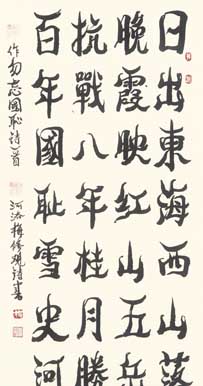 日出東海西山落
晚霞映紅五山
抗戰八年桂月勝
百年國恥雪史河
作勿忘國恥詩一首
河洛